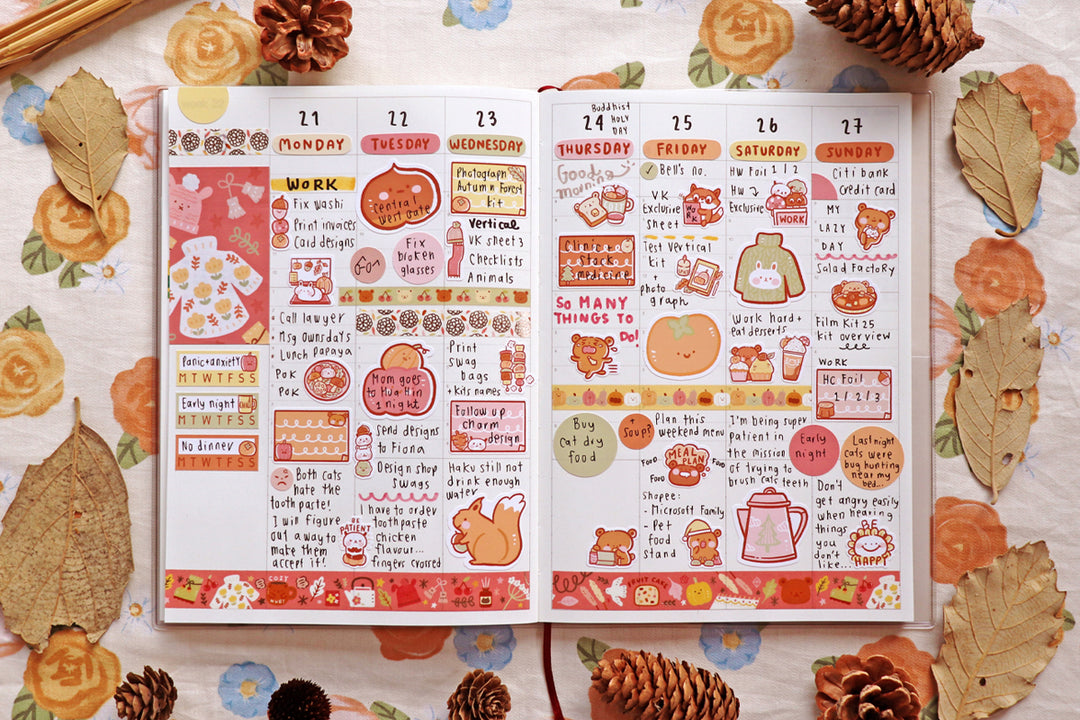 week 38
Panic+anxiety
M T W T F S S
Early night
M T W T F S S
No dinner
M T W T F S S
21
MONDAY
WORK
Fix washi
Print invoices
Card designs
Call lawyer
Msg Owndays
Lunch Papaya
POK
POK
Both cats
hate the
toothpaste!
I will figure
out a way to
make them
accept it!
BE
PATIENT
22
TUESDAY
Central
West Gate
Fix
broken
glasses
Mom goes
to Hua Hin
1 night
Send designs
to Fiona
Design shop
swags
I have to order
toothpaste
chicken
flavour...
fingers crossed
23
WEDNESDAY
Photograph
Autumn Forest
kit
Vertical
VK sheet 3
Checklists
Animals
Print
swag
bags
+ kits names
Follow up
charm
design
Haku still not
drink enough
water
COZY
Buddhist
HOLY
DAY
24
THURSDAY
Good
morning
Clinic -
Stock
medicine
SO MANY
THINGS TO
DO!
Buy
cat dry
food
25
FRIDAY
✓ Bell's no.
VK
Exclusive
sheet
WORK
Test Vertical
kit
+
photo
graph
+
Soup?
Plan this
weekend menu
FOOD
MEAL
PLAN
FOOD
FOOD
Shopee:
- Microsoft Family
- Pet
food
stand
26
SATURDAY
HW Foil 1/2
HW
Exclusive
WORK
Work hard +
eat desserts
I'm being super
patient in
the mission
of trying to
brush cats teeth
27
SUNDAY
Citi bank
Credit card
MY
LAZY
DAY
Salad Factory
Film Kit 25
kit overview
WORK
HC Foil
1/2/3
Early
night
Last night
cats were
bug hunting
near my
bed...
Don't
get angry easily
when hearing
things
you
don't
like...
BE
HAPPY
FRUIT CAKE